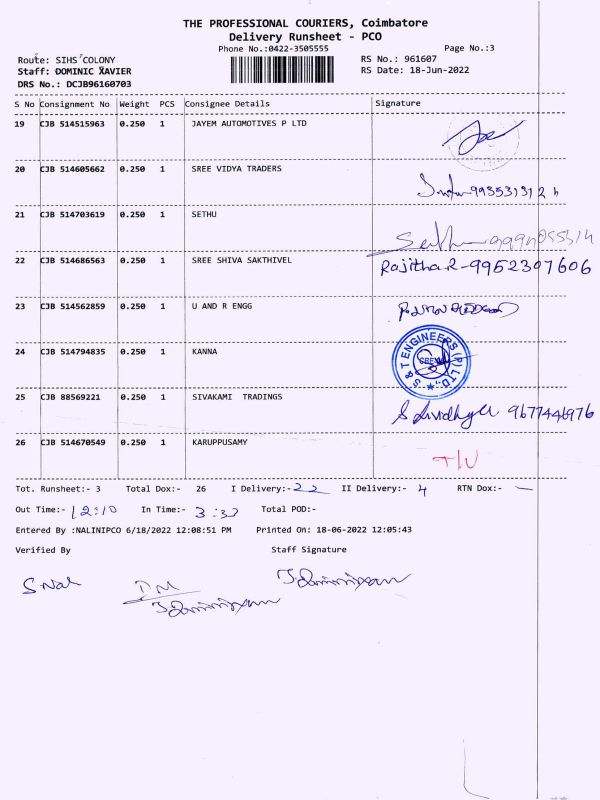 THE PROFESSIONAL COURIERS, Coimbatore
Delivery Runsheet - PCO
Phone No.:0422-3505555 Page No.:3
Route: SIHS COLONY RS No.: 961607
Staff: DOMINIC XAVIER RS Date: 18-Jun-2022
DRS No.: DCJB96160703
S No Consignment No Weight PCS Consignee Details Signature
19 CJB 514515963 0.250 1 JAYEM AUTOMOTIVES P LTD
20 CJB 514605662 0.250 1 SREE VIDYA TRADERS
21 CJB 514703619 0.250 1 SETHU
22 CJB 514686563 0.250 1 SREE SHIVA SAKTHIVEL
Rajitha R-9952307606
23 CJB 514562859 0.250 1 U AND R ENGG
24 CJB 514794835 0.250 1 KANNA
S & T ENGINEERS (P) LTD.,
25 CJB 88569221 0.250 1 SIVAKAMI TRADINGS
9677446976
26 CJB 514670549 0.250 1 KARUPPUSAMY
Tot. Runsheet:- 3 Total Dox:- 26 I Delivery:- 22 II Delivery:- 4 RTN Dox:- —
Out Time:- 12:10 In Time:- 3:30 Total POD:-
Entered By :NALINIPCO 6/18/2022 12:08:51 PM Printed On: 18-06-2022 12:05:43
Verified By Staff Signature